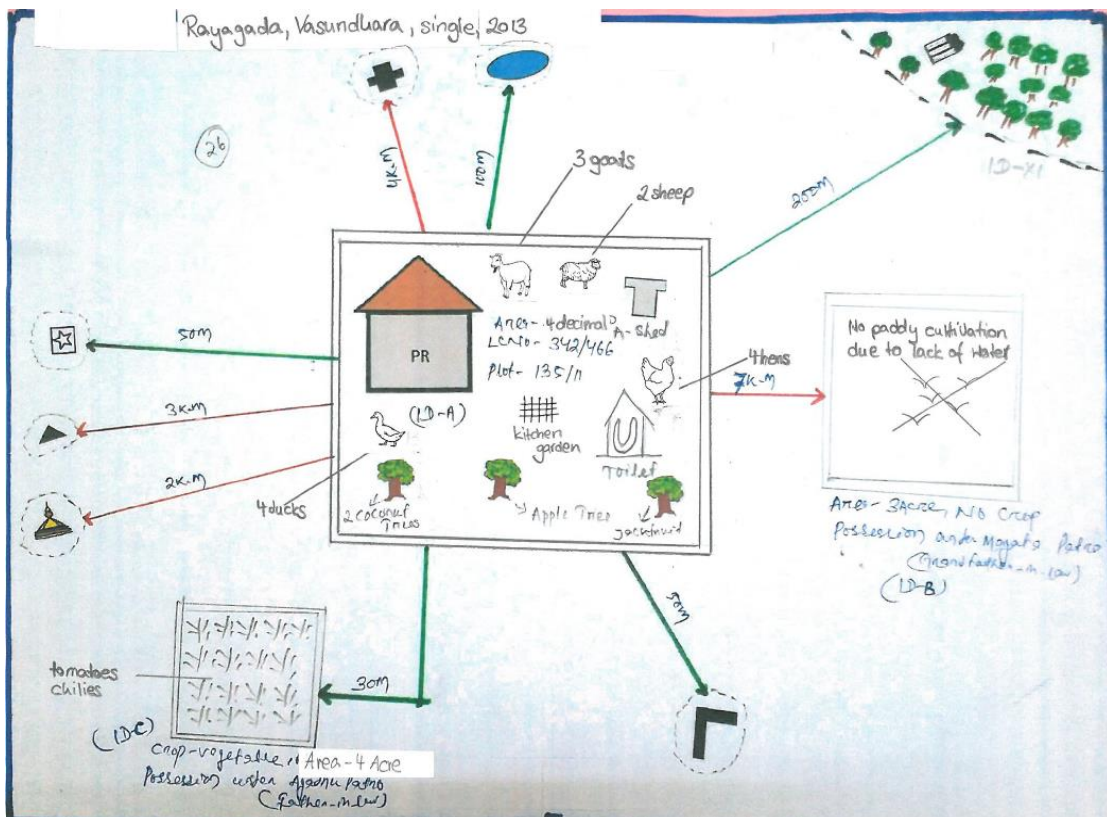 Rayagada, Vasundhara, single, 2013
26
4K.M
100M
3 goats
2 sheep
200M
1D-X1
Area- 4 decimal
A-Shed
LCNo- 342/466
Plot- 135/n
PR
(1D-A)
4 hens
kitchen
garden
Toilet
4 ducks
2 Coconut
Trees
Apple Tree
Jackfruid
50M
3K.M
2K.M
7K.M
No paddy cultivation
due to lack of water
Area- 3Acre, No Crop
Possession under Patro
(Grandfather-in-law)
(1D-B)
50M
30M
tomatoes
chilies
(1D-C)
Crop-vegetable, Area-4 Acre
Possession under Patro
(Father-in-law)